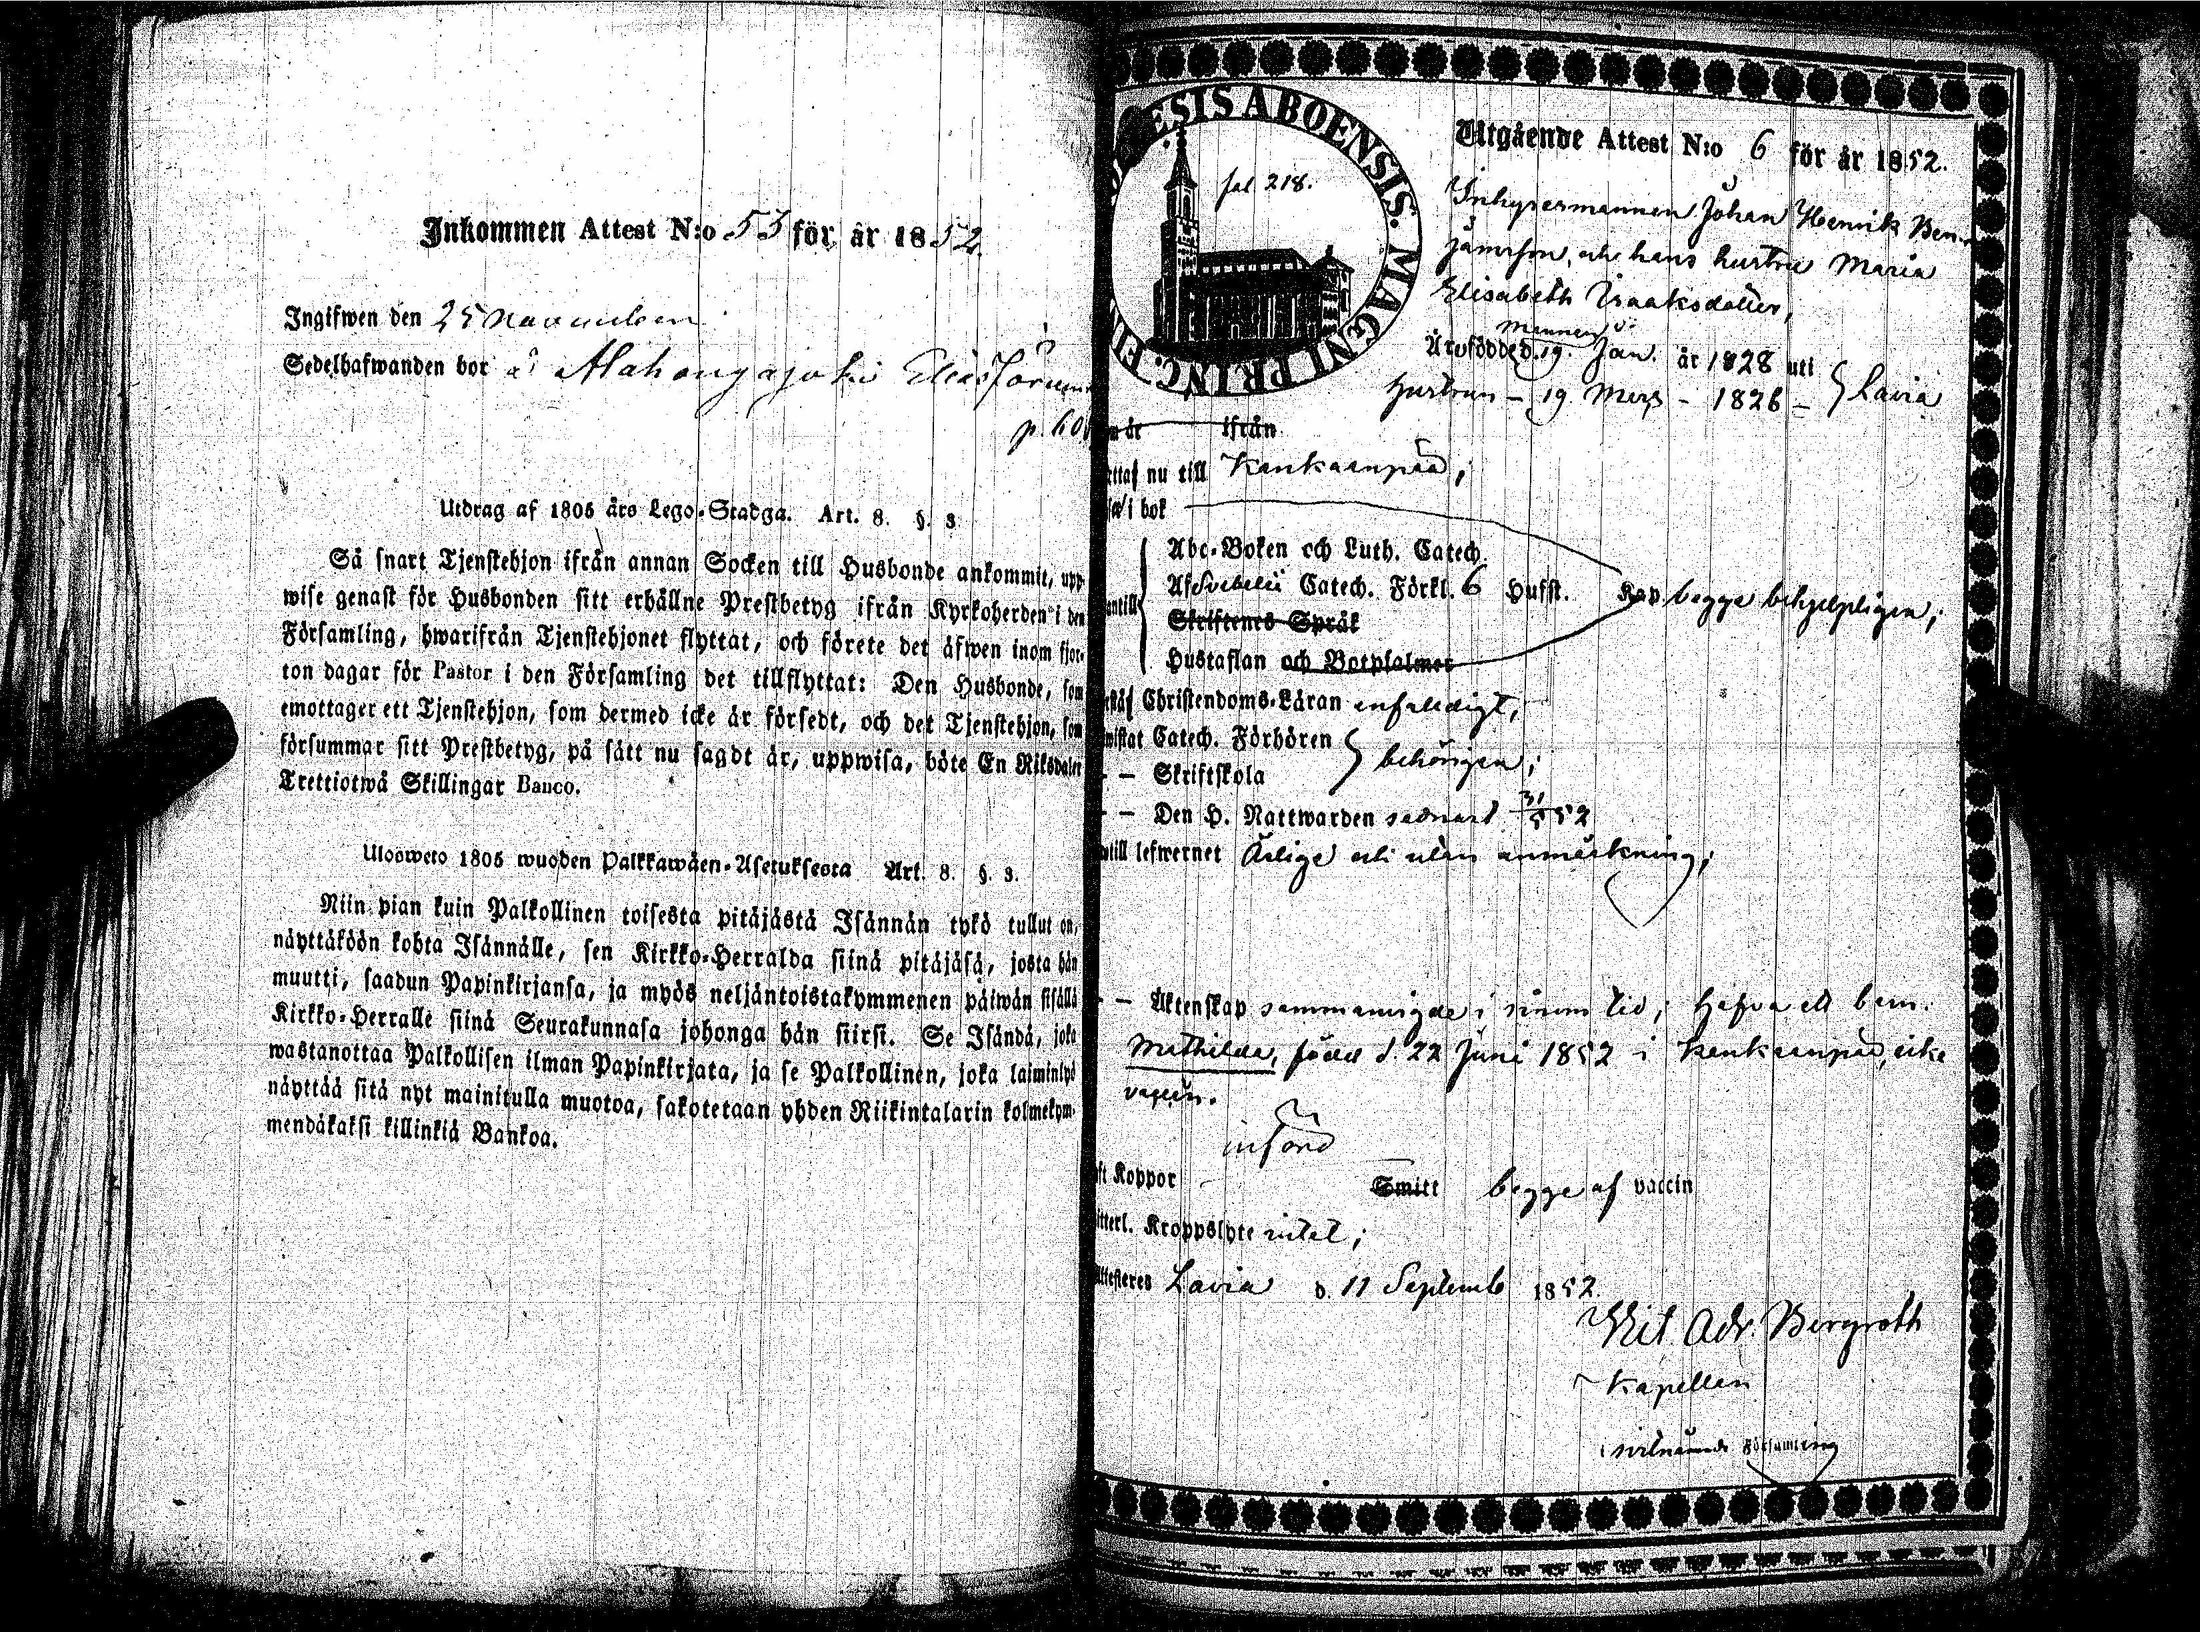 Inkommen Attest N:o 53 för år 1852.
Ingifwen den 25 November
Sedelhafwanden bor å Alahongajoki
p. 60
Utdrag af 1805 års Lego-Stadga. Art. 8. §. 3.
Så snart Tjenstehjon ifrån annan Socken till Husbonde ankommit, upp-
wise genast för Husbonden sitt erhållne Prestbetyg ifrån Kyrkoherden i den
Församling, hwarifrån Tjenstehjonet flyttat, och förete det äfwen inom fjor-
ton dagar för Pastor i den Församling det tillflyttat: Den Husbonde, som
emottager ett Tjenstehjon, som dermed icke är försedt, och det Tjenstehjon, som
försummar sitt Prestbetyg, på sätt nu sagdt är, uppwisa, böte En Riksdaler
Trettiotwå Skillingar Banco.
Ulosweto 1805 wuoden Palkkawäen-Asetuksesta Art. 8. §. 3.
Niin pian kuin Palkollinen toisesta pitäjästä Isännän tykö tullut on,
näyttäköön kohta Isännälle, sen Kirkko-Herralda siinä pitäjäsä, josta hän
muutti, saadun Papinkirjansa, ja myös neljäntoistakymmenen päiwän sisällä
Kirkko-Herralle siinä Seurakunnasa johonga hän siirsi. Se Isändä, joka
wastanottaa Palkollisen ilman Papinkirjata, ja se Palkollinen, joka laiminlyö
näyttää sitä nyt mainitulla muotoa, sakotetaan yhden Riikintalarin kolmekym-
mendäkaksi killinkiä Bankoa.
ESIS ABOENSIS. MAGNI PRINC. FIN
fol 218.
Utgående Attest N:o 6 för år 1852.
Inhysesmannen Johan Henrik Ben-
jamsson, och hans hustru Maria
Elisabeth Isaaksdotter,
Mannen
Äro födde d. 19. Jan. år 1828 uti
Hustrun – 19 Mars – 1826 – } Lavia
år ifrån
nu till Kankaanpää;
i bok
Abc-Boken och Luth. Catech.
Af Svebelii Catech. Förkl. 6 Hufst. Kap begge behjelpligen;
Skriftenes Språk
Hustaflan och Botpsalmer
Christendoms-Läran enfaldigt;
Catech. Förhören } behörigen;
– – Skriftskola
– – Den H. Nattwarden sednast 31/5 52
till lefwernet Ärlige och utan anmärkning;
– – Äktenskap sammanvigde i sinom tid; hafva ett barn:
Mathilda, född d. 22 Juni 1852 i Kankaanpää, icke
vaccin.
införd
Koppor Smitt begge af vaccin
Kroppslyte intet;
Attesteres Lavia d. 11 Septemb 1852.
Adr. Bergroth
Kapellan
i ofvannämnde Församling